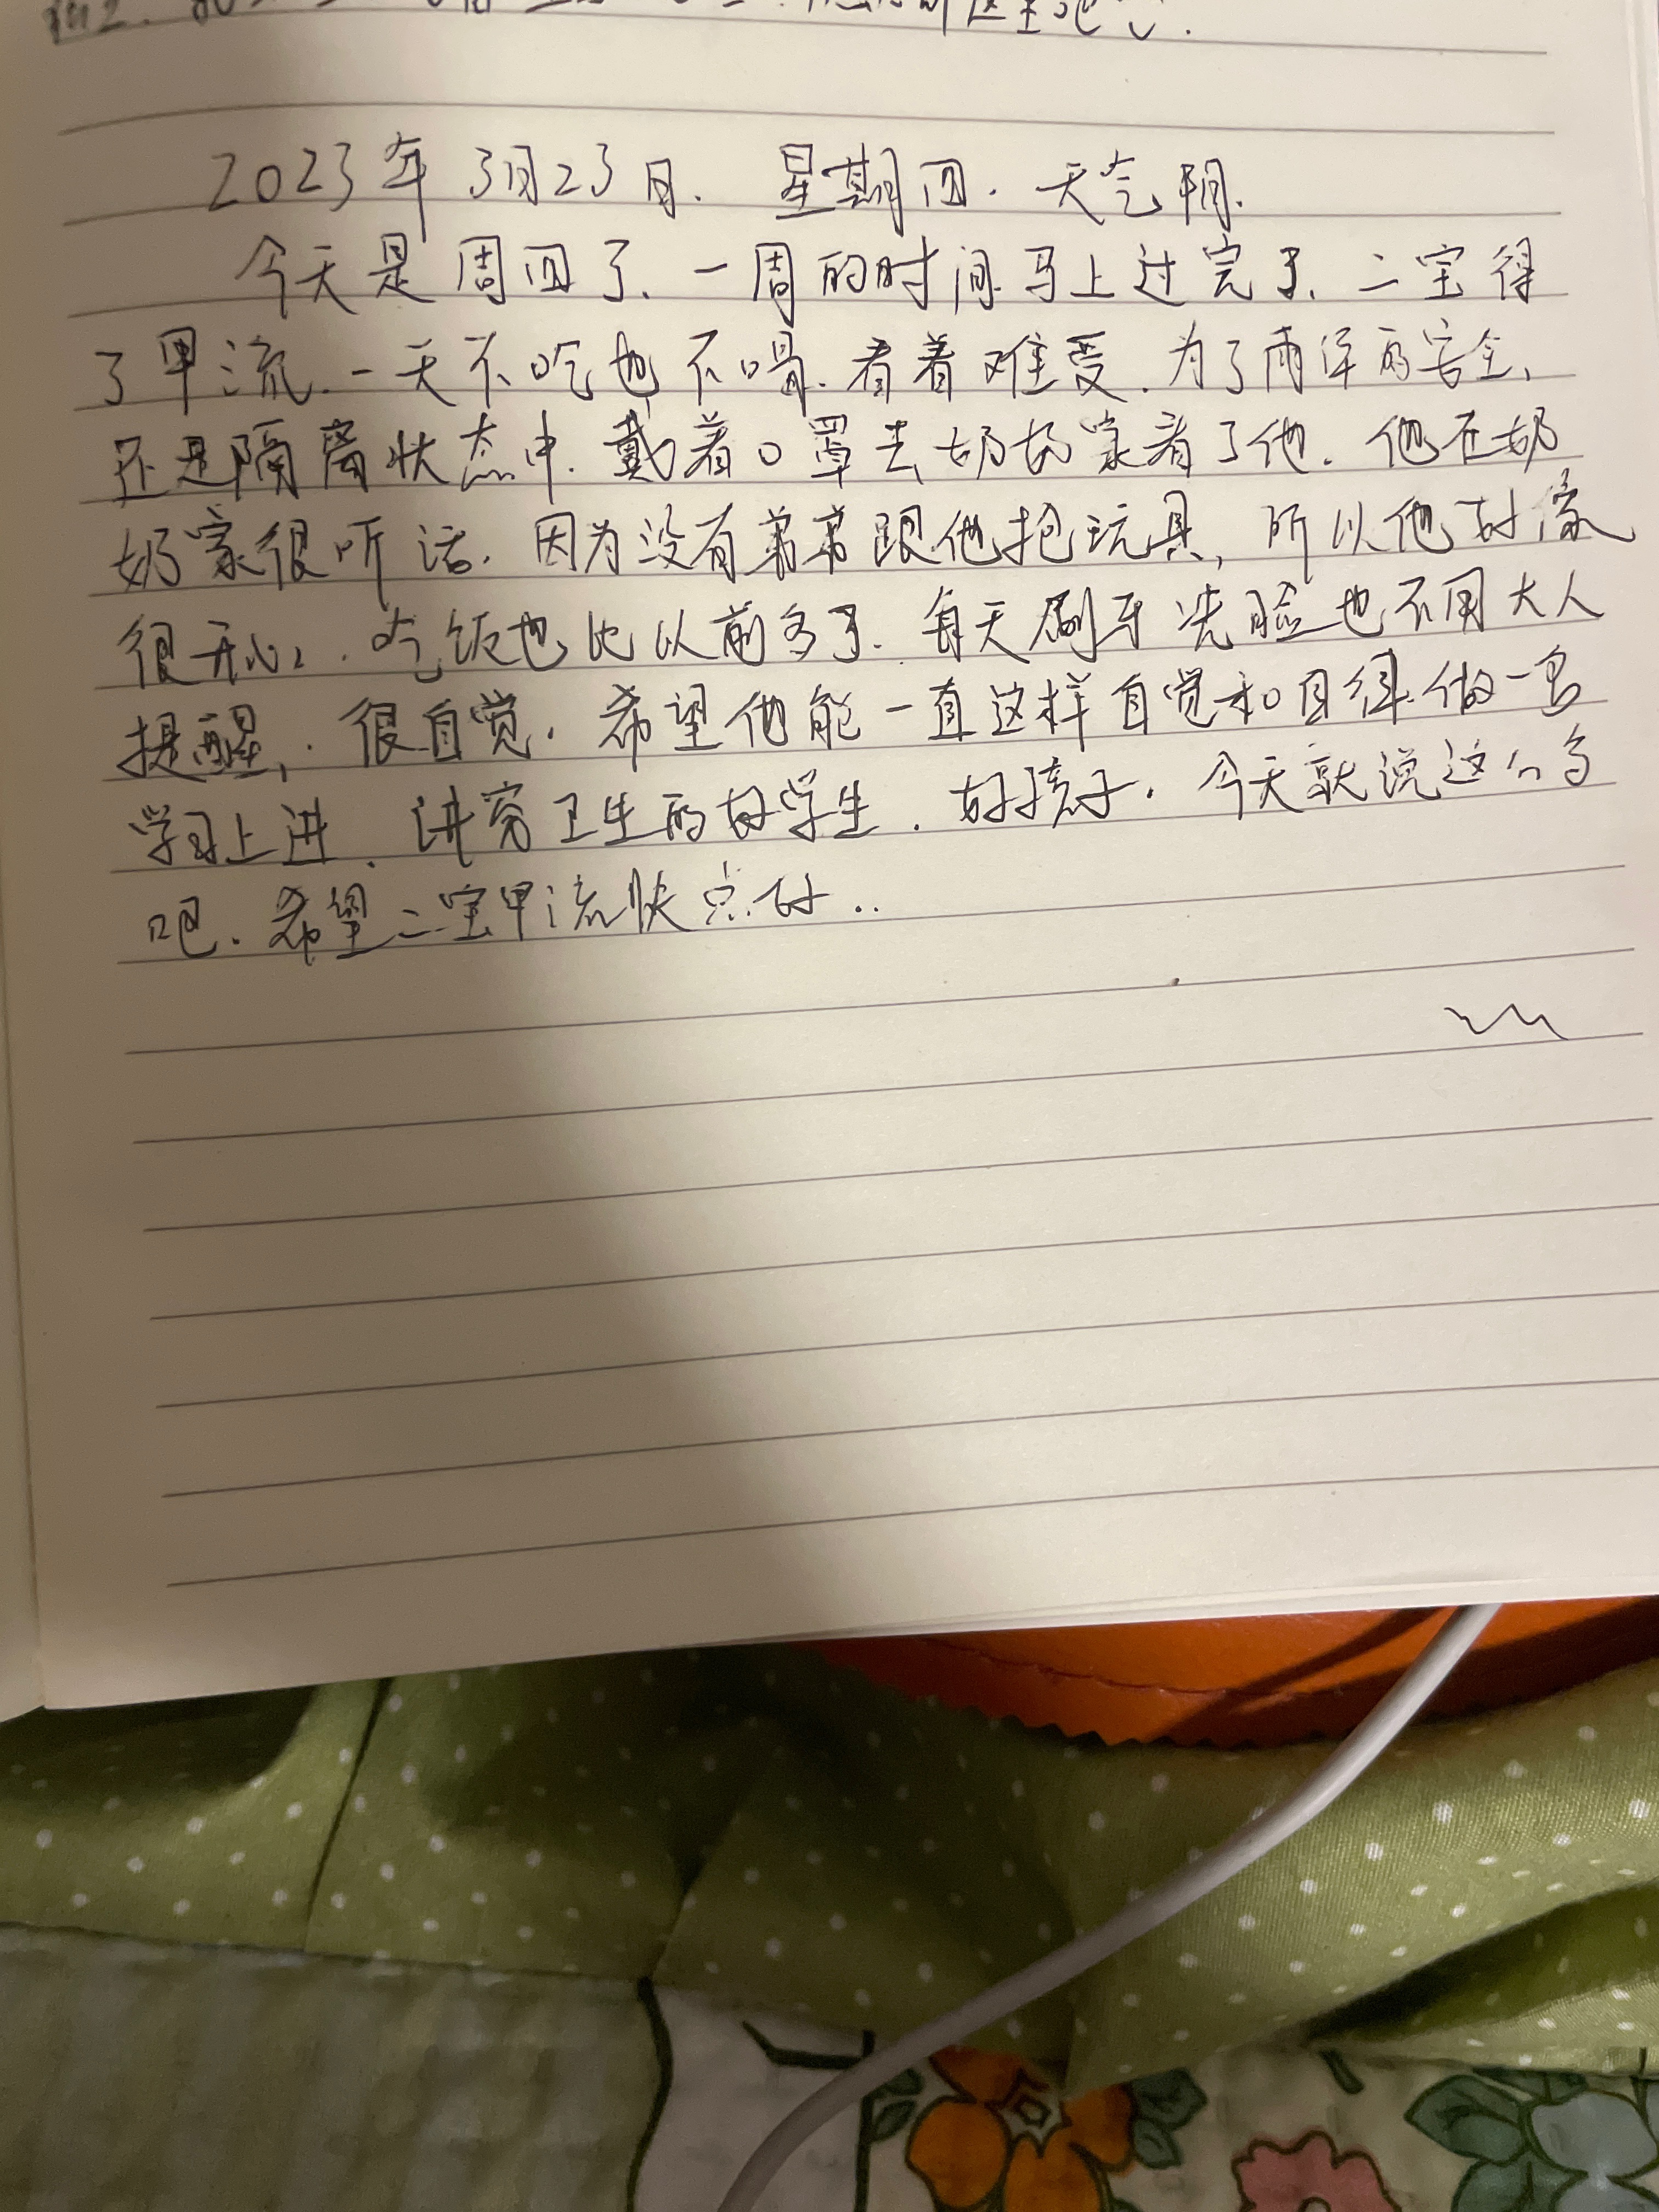 2023年3月23日. 星期四. 天气阴.
今天是周四了、一周的时间马上过完了、二宝得
了甲流.一天不吃也不喝.看着难受.为了雨泽的安全、
还是隔离状态中.戴着口罩去奶奶家看了他.他在奶
奶家很听话.因为没有弟弟跟他抢玩具,所以他好像
很开心.吃饭也比以前多了.每天刷牙洗脸也不用大人
提醒,.很自觉.希望他能一直这样自觉和自律.做一名
学习上进、讲究卫生的好学生.好孩子.今天就说这么多
吧.希望二宝甲流快点好..